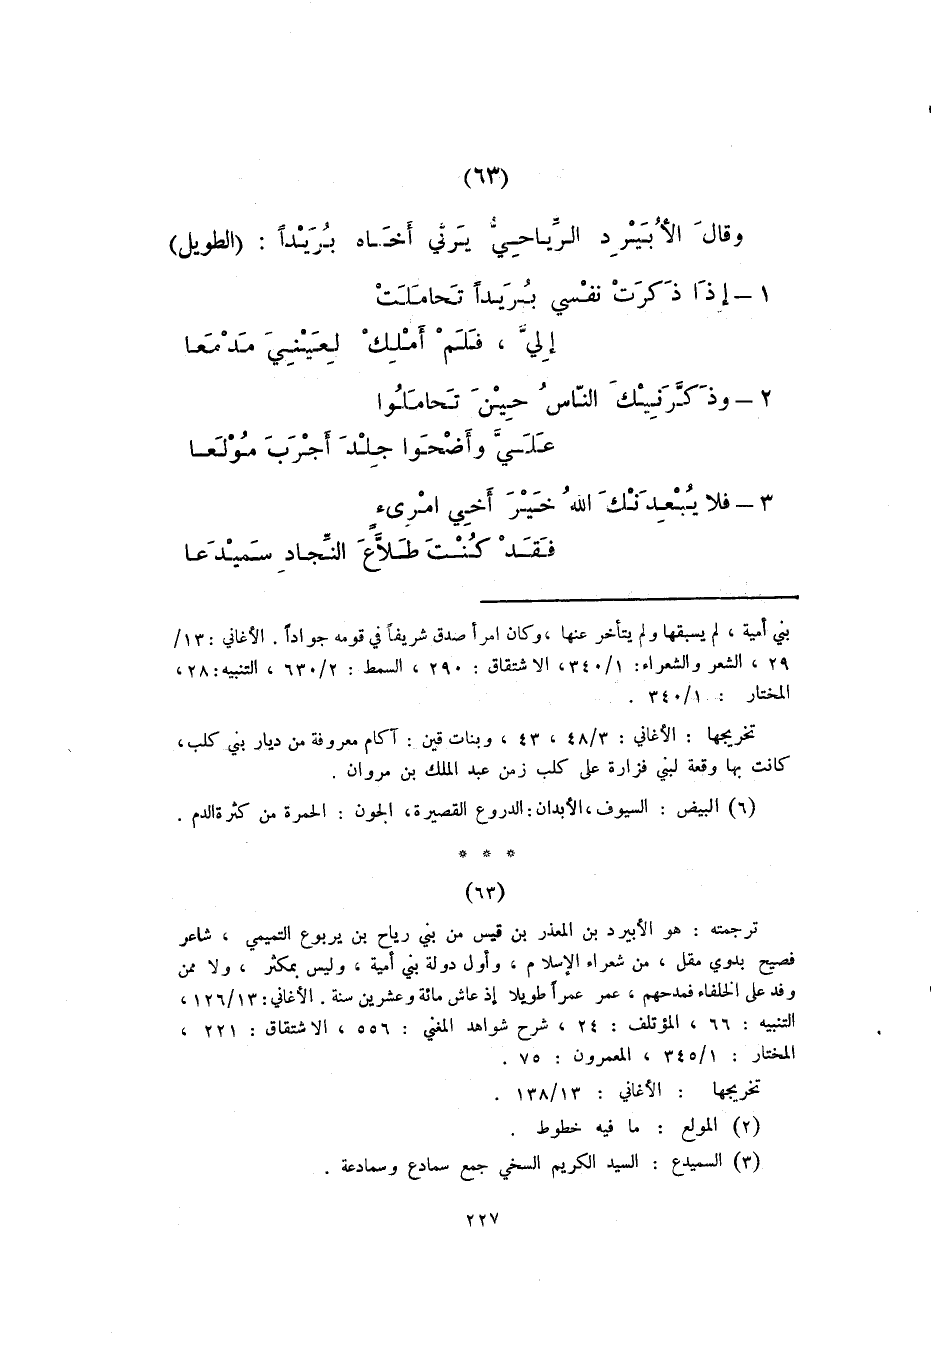 (٦٣)
وقالَ الأُبَيْرِد الرِّياحِيُّ يَرثي أخَاه بُرَيْداً : (الطويل)
١ – إذَا ذَكَرَتْ نفْسي بُرَيداً تَحامَلَتْ
إليَّ ، فَلَمْ أَمْلِكْ لِعَيْنيَ مَدْمَعا
٢ – وذَكَّرَنِيْكَ النّاسُ حِيْنَ تَحامَلُوا
عَلَيَّ وأَضْحَوا جِلْدَ أَجْرَبَ مُوْلَعا
٣ – فلا يُبْعِدَنْكَ اللهُ خَيْرَ أَخي امْرِىءٍ
فَقَدْ كُنْتَ طَلاَّعَ النِّجادِ سَمَيْدَعا
بني أمية ، لم يسبقها ولم يتأخر عنها ، وكان امرأ صدق شريفاً في قومه جواداً . الأغاني : ١٣/
٢٩ ، الشعر والشعراء: ٣٤٠/١، الاشتقاق : ٢٩٠ ، السمط : ٦٣٠/٢ ، التنبيه: ٢٨ ،
المختار : ٣٤٠/١ .
تخريجها : الأغاني : ٤٨/٣ ، ٤٣ ، وبنات قين : آكام معروفة من ديار بني كلب،
كانت بها وقعة لبني فزارة على كلب زمن عبد الملك بن مروان .
(٦) البيض : السيوف ،الأبدان: الدروع القصيرة، الجون : الحمرة من كثرة الدم .
* * *
(٦٣)
ترجمته : هو الأبيرد بن المعذر بن قيس من بني رياح بن يربوع التميمي ، شاعر
فصيح بدوي مقل ، من شعراء الإسلام ، وأول دولة بني أمية ، وليس بمكثر ، ولا ممن
وفد على الخلفاء فمدحهم ، عمر عمراً طويلا إذ عاش مائة وعشرين سنة . الأغاني: ١٢٦/١٣ ،
التنبيه : ٦٦ ، المؤتلف : ٢٤ ، شرح شواهد المغني : ٥٥٦ ، الاشتقاق : ٢٢١ ،
المختار : ٣٤٥/١ ، المعمرون : ٧٥ .
تخريجها : الأغاني : ١٣٨/١٣ .
(٢) المولع : ما فيه خطوط .
(٣) السميدع : السيد الكريم السخي جمع سمادع وسمادعة .
٢٢٧